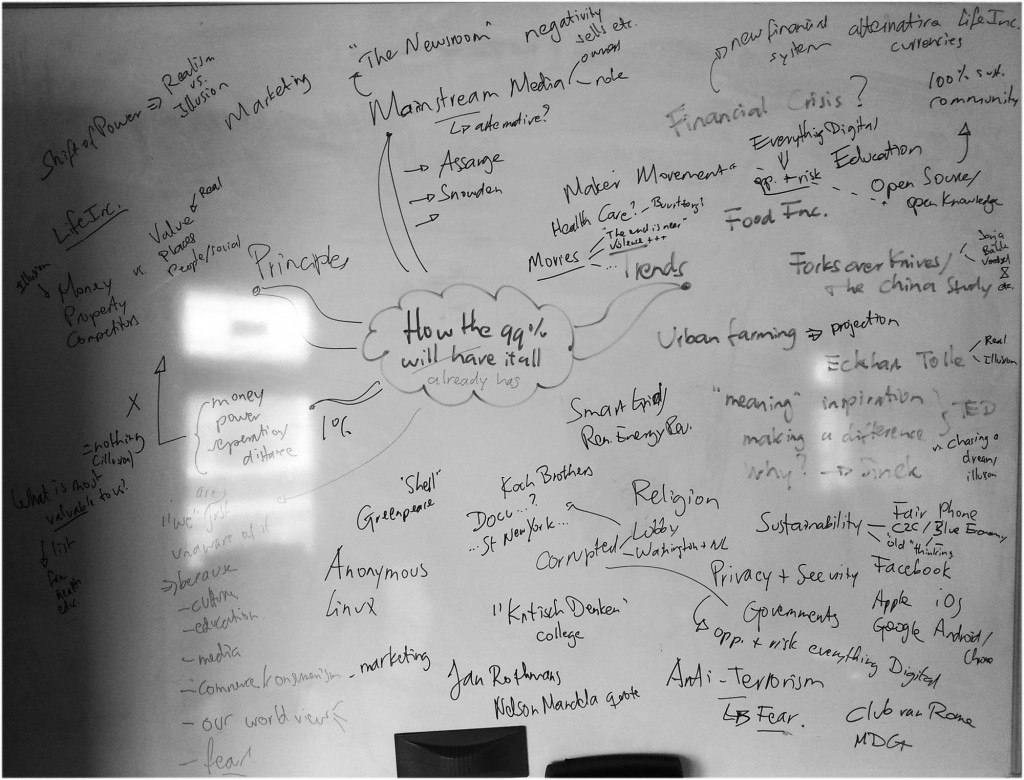 "The Newsroom"
negativity
sells etc.
owners
role
Mainstream Media
↳ alternative?
→ Assange
→ Snowden
→
Shift of Power ⇒ Realism
vs.
Illusion
Marketing
new financial
system
alternative
currencies
LifeInc.
Financial Crisis?
100% sust.
community
Everything Digital
opp. + risk
Education
Open Source/
open knowledge
Maker Movement
Health Care? -
Movies
"The end is near"
Violence +++
...
Food Inc.
Trends
Forks over Knives/
the China Study
etc.
LifeInc.
Illusion
Money
Property
Competitors
vs.
Real
Value
Places
People/social
Principles
How the 99%
will have it all
already has
Urban farming ⇒ projection
Eckhart Tolle
Real
Illusion
"meaning" inspiration
making a difference
why? →
TED
vs. chasing a
dream/
illusion
X
money
power
seperation/
distance
1%
= nothing
(illusion)
What is most
valuable to us?
list
fam
health
edu.
Smart Grid/
Ren. Energy Rev.
"we" are just
unaware of it
⇒ because
- culture
- education
- media
- commerce/consumerism - marketing
- our world views
- fear!
"Shell"
Greenpeace
Koch Brothers
Docu ...?
... St New York ...
Religion
Corrupted
Lobby
Washington + NL
Sustainability
Fair Phone
C2C / Blue Economy
"old" thinking
Anonymous
Linux
Privacy + Security
Facebook
Governments
Apple iOS
Google Android/
Chrome
opp. + risk everything Digital
"Kritisch Denken"
college
Jan Rothmans
Nelson Mandela quote
Anti-Terrorism
↳ Fear.
Club van Rome
MDG